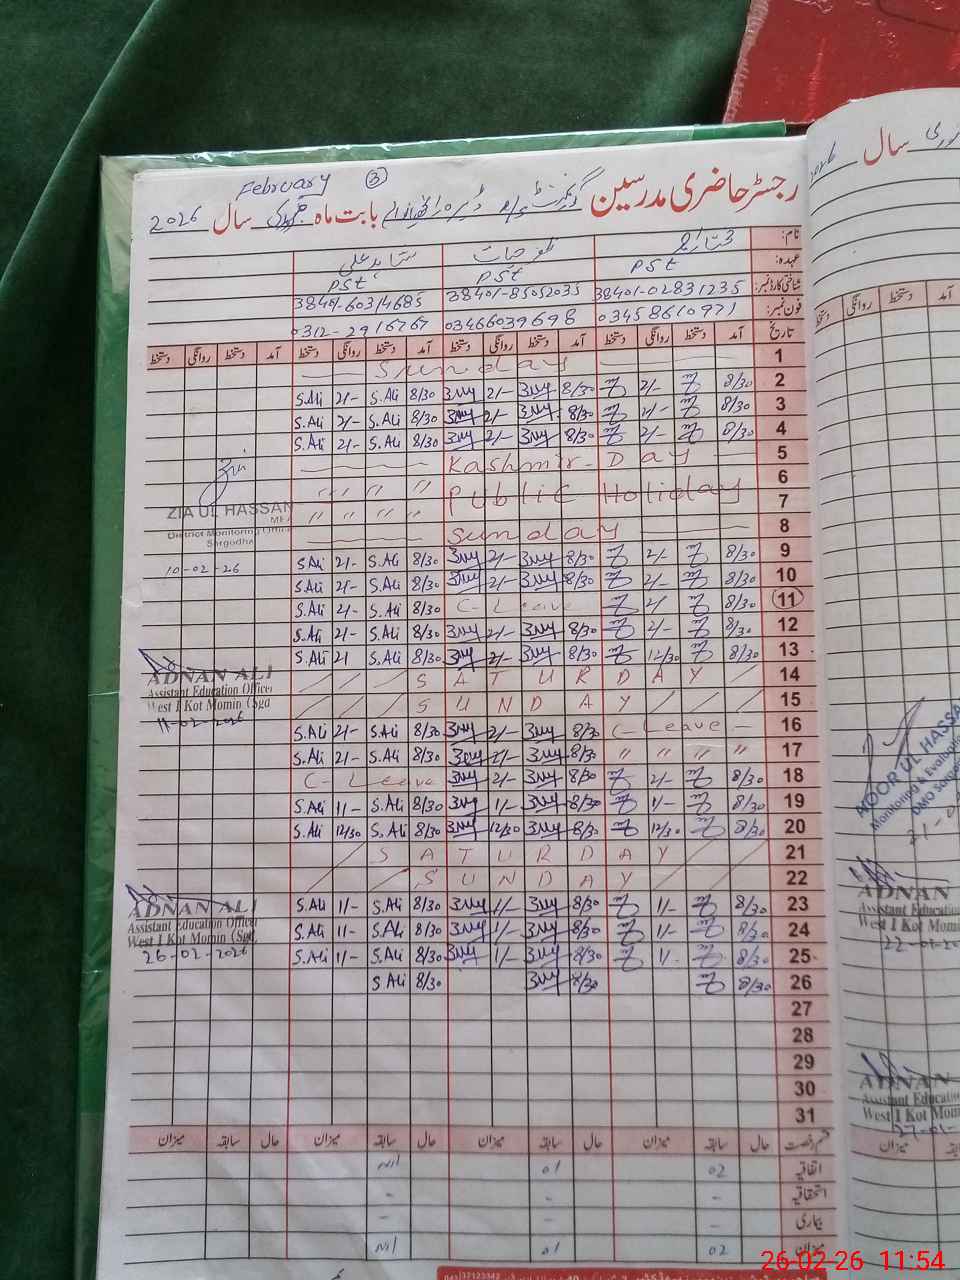 February ③
رجسٹر حاضری مدرسین گورنمنٹ بابت ماہ فروری سال 2026
نام: مختار ظفر حیات شاہد علی
عہدہ: PSt PSt PSt
شناختی کارڈ نمبر: 38401-02831235 38401-85052035 38401-60314685
فون نمبر: 03458610971 03466039698 0312-2916767
تاریخ آمد دستخط روانگی دستخط آمد دستخط روانگی دستخط آمد دستخط روانگی دستخط آمد دستخط روانگی دستخط
1 Sunday
2 8/30 2/- 8/30 2/- 8/30 S.Ali 2/- S.Ali
3 8/30 2/- 8/30 2/- 8/30 S.Ali 2/- S.Ali
4 8/30 2/- 8/30 2/- 8/30 S.Ali 2/- S.Ali
5 Kashmir Day
6 Public Holiday
7
8 Sunday
9 8/30 2/- 8/30 2/- 8/30 S.Ali 2/- S.Ali
10 8/30 2/- 8/30 2/- 8/30 S.Ali 2/- S.Ali
11 8/30 2/- C-Leave 8/30 S.Ali 2/- S.Ali
12 8/30 2/- 8/30 2/- 8/30 S.Ali 2/- S.Ali
13 8/30 12/30 8/30 2/- 8/30 S.Ali 2/ S.Ali
14 SATURDAY
15 SUNDAY
16 C-Leave 8/30 2/- 8/30 S.Ali 2/- S.Ali
17 " " " " 8/30 2/- 8/30 S.Ali 2/- S.Ali
18 8/30 2/- 8/30 2/- C-Leave
19 8/30 1/- 8/30 1/- 8/30 S.Ali 11- S.Ali
20 8/30 12/30 8/30 12/30 8/30 S.Ali 12/30 S.Ali
21 SATURDAY
22 SUNDAY
23 8/30 1/- 8/30 1/- 8/30 S.Ali 1/- S.Ali
24 8/30 1/- 8/30 1/- 8/30 S.Ali 1/- S.Ali
25 8/30 1/- 8/30 1/- 8/30 S.Ali 1/- S.Ali
26 8/30 8/30 8/30 S Ali
27
28
29
30
31
قسم رخصت حال سابقہ میزان حال سابقہ میزان حال سابقہ میزان حال سابقہ میزان
اتفاقیہ 02 01 Nil
استحقاقیہ - - -
بیماری - - -
میزان 02 01 Nil
ZIA UL HASSAN
MEA
District Monitoring Office
Sargodha
10-02-26
ADNAN ALI
Assistant Education Officer
West I Kot Momin (Sgd
11-02-2026
ADNAN ALI
Assistant Education Officer
West I Kot Momin (Sgd.
26-02-2026
سال
دستخط روانگی دستخط آمد
NOOR UL HASSA
Monitoring & Evaluatio
DMO Sargo
ADNAN
Assistant Education
West I Kot Momi
ADNAN
Assistant Educat
West I Kot Mom
میزان
26-02-26 11:54